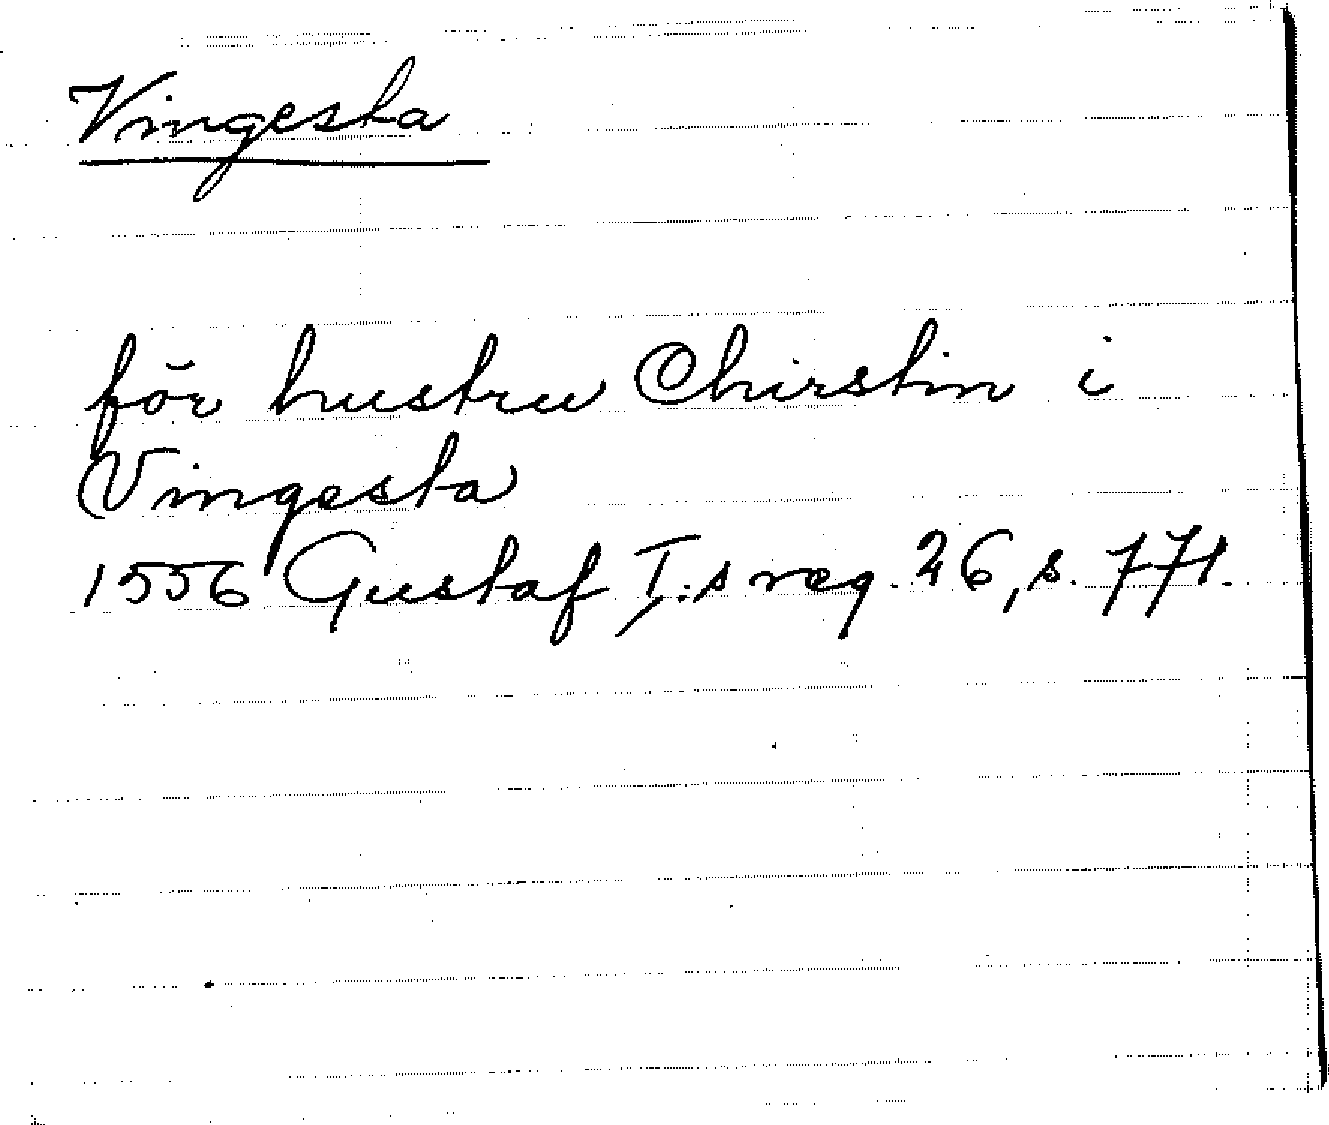 Vingesta
för hustru Chirstin i
Vingesta
1556 Gustaf I:s reg. 26, s. 771.